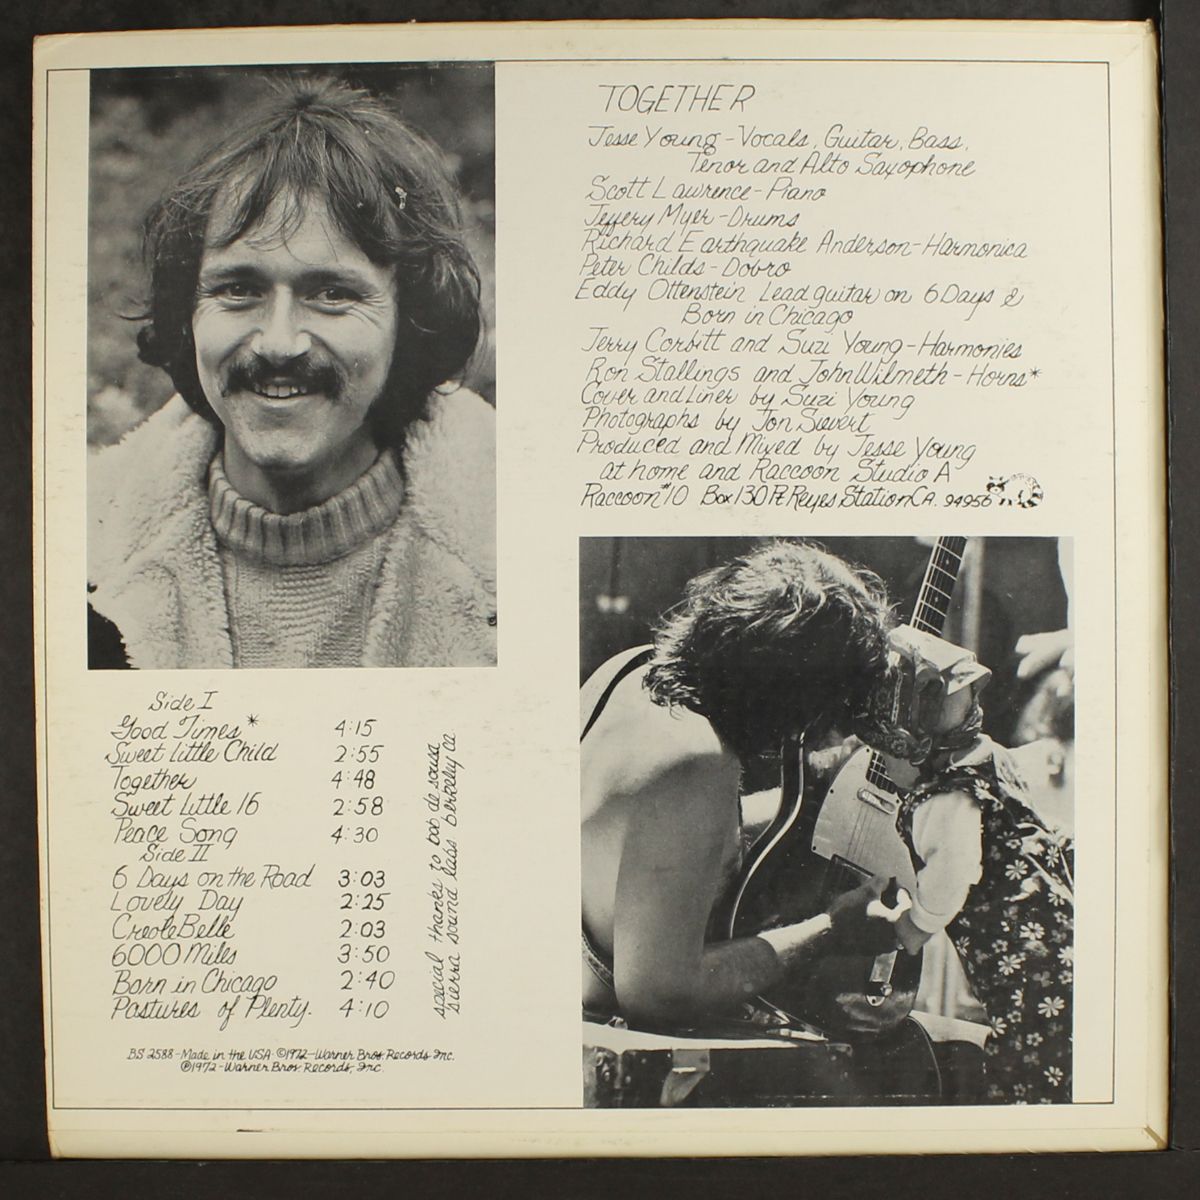 TOGETHER
Jesse Young - Vocals, Guitar, Bass,
Tenor and Alto Saxophone
Scott Lawrence - Piano
Jeffery Myer - Drums
Richard Earthquake Anderson - Harmonica
Peter Childs - Dobro
Eddy Ottenstein Lead guitar on 6 Days &
Born in Chicago
Jerry Corbitt and Suzi Young - Harmonies
Ron Stallings and John Wilmeth - Horns*
Cover and Liner by Suzi Young
Photographs by Jon Sievert
Produced and Mixed by Jesse Young
at home and Raccoon Studio A
Raccoon #10 Box 130 Pt. Reyes Station CA. 94956
Side I
Good Times* 4:15
Sweet Little Child 2:55
Together 4:48
Sweet Little 16 2:58
Peace Song 4:30
Side II
6 Days on the Road 3:03
Lovely Day 2:25
Creole Belle 2:03
6000 Miles 3:50
Born in Chicago 2:40
Pastures of Plenty. 4:10
special thanks to bob de sousa
sierra sound labs berkeley ca.
BS 2588 - Made in the USA - ©1972 - Warner Bros. Records Inc.
℗1972 - Warner Bros. Records, Inc.